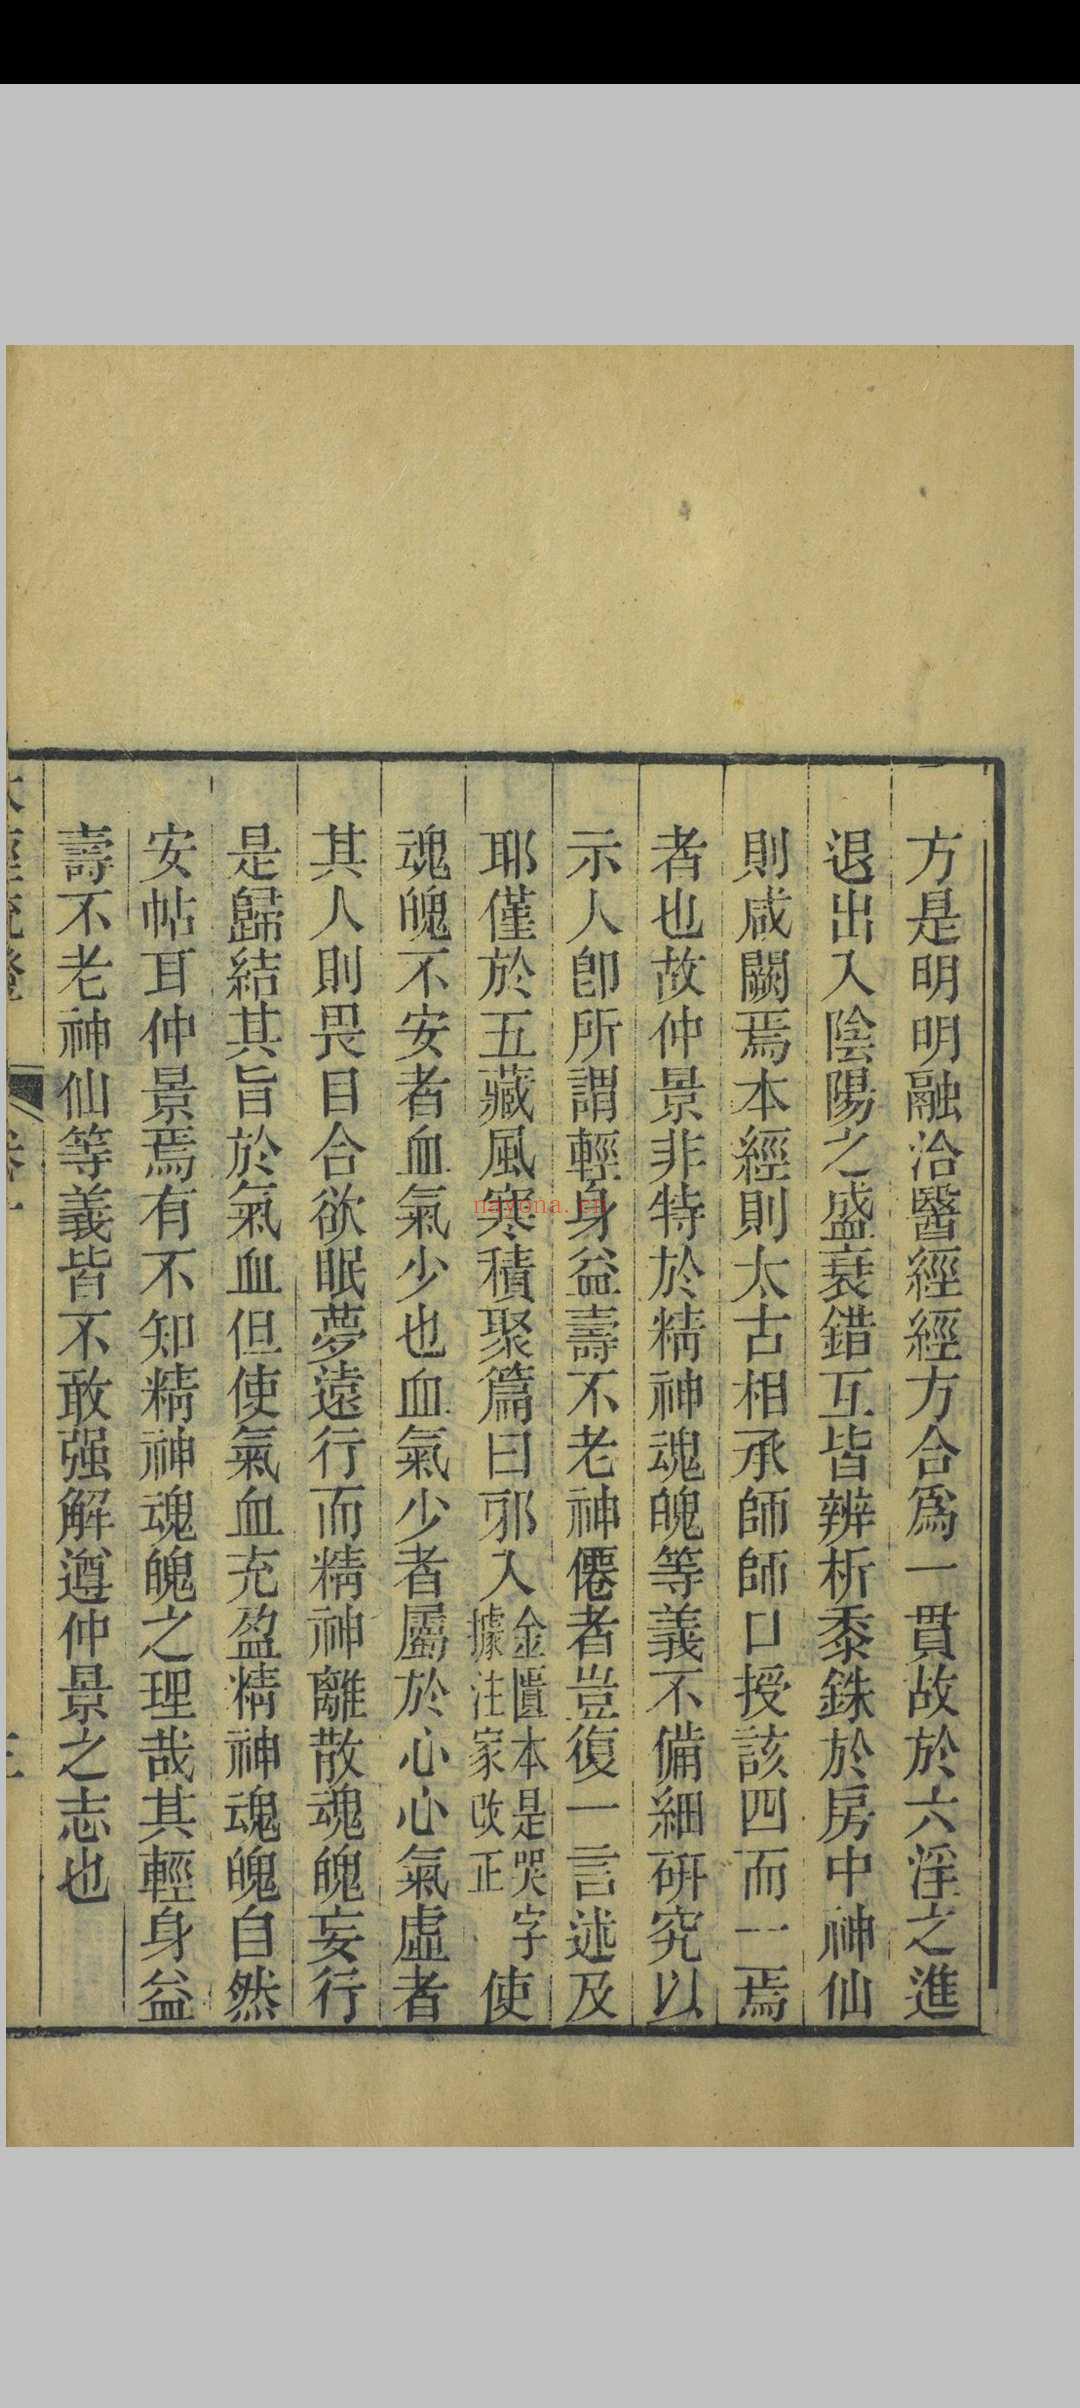 方是明明融洽醫經經方合爲一貫故於六淫之進
退出入陰陽之盛衰錯互皆辨析黍銖於房中神仙
則咸闕焉本經則太古相承師師口授該四而一焉
者也故仲景非特於精神魂魄等義不備細研究以
示人卽所謂輕身益壽不老神僊者豈復一言述及
耶僅於五藏風寒積聚篇曰邪入金匱本是哭字據注家改正使
魂魄不安者血氣少也血氣少者屬於心心氣虛者
其人則畏目合欲眠夢遠行而精神離散魂魄妄行
是歸結其旨於氣血但使氣血充盈精神魂魄自然
安帖耳仲景焉有不知精神魂魄之理哉其輕身益
壽不老神仙等義皆不敢强解遵仲景之志也
nayona.cn